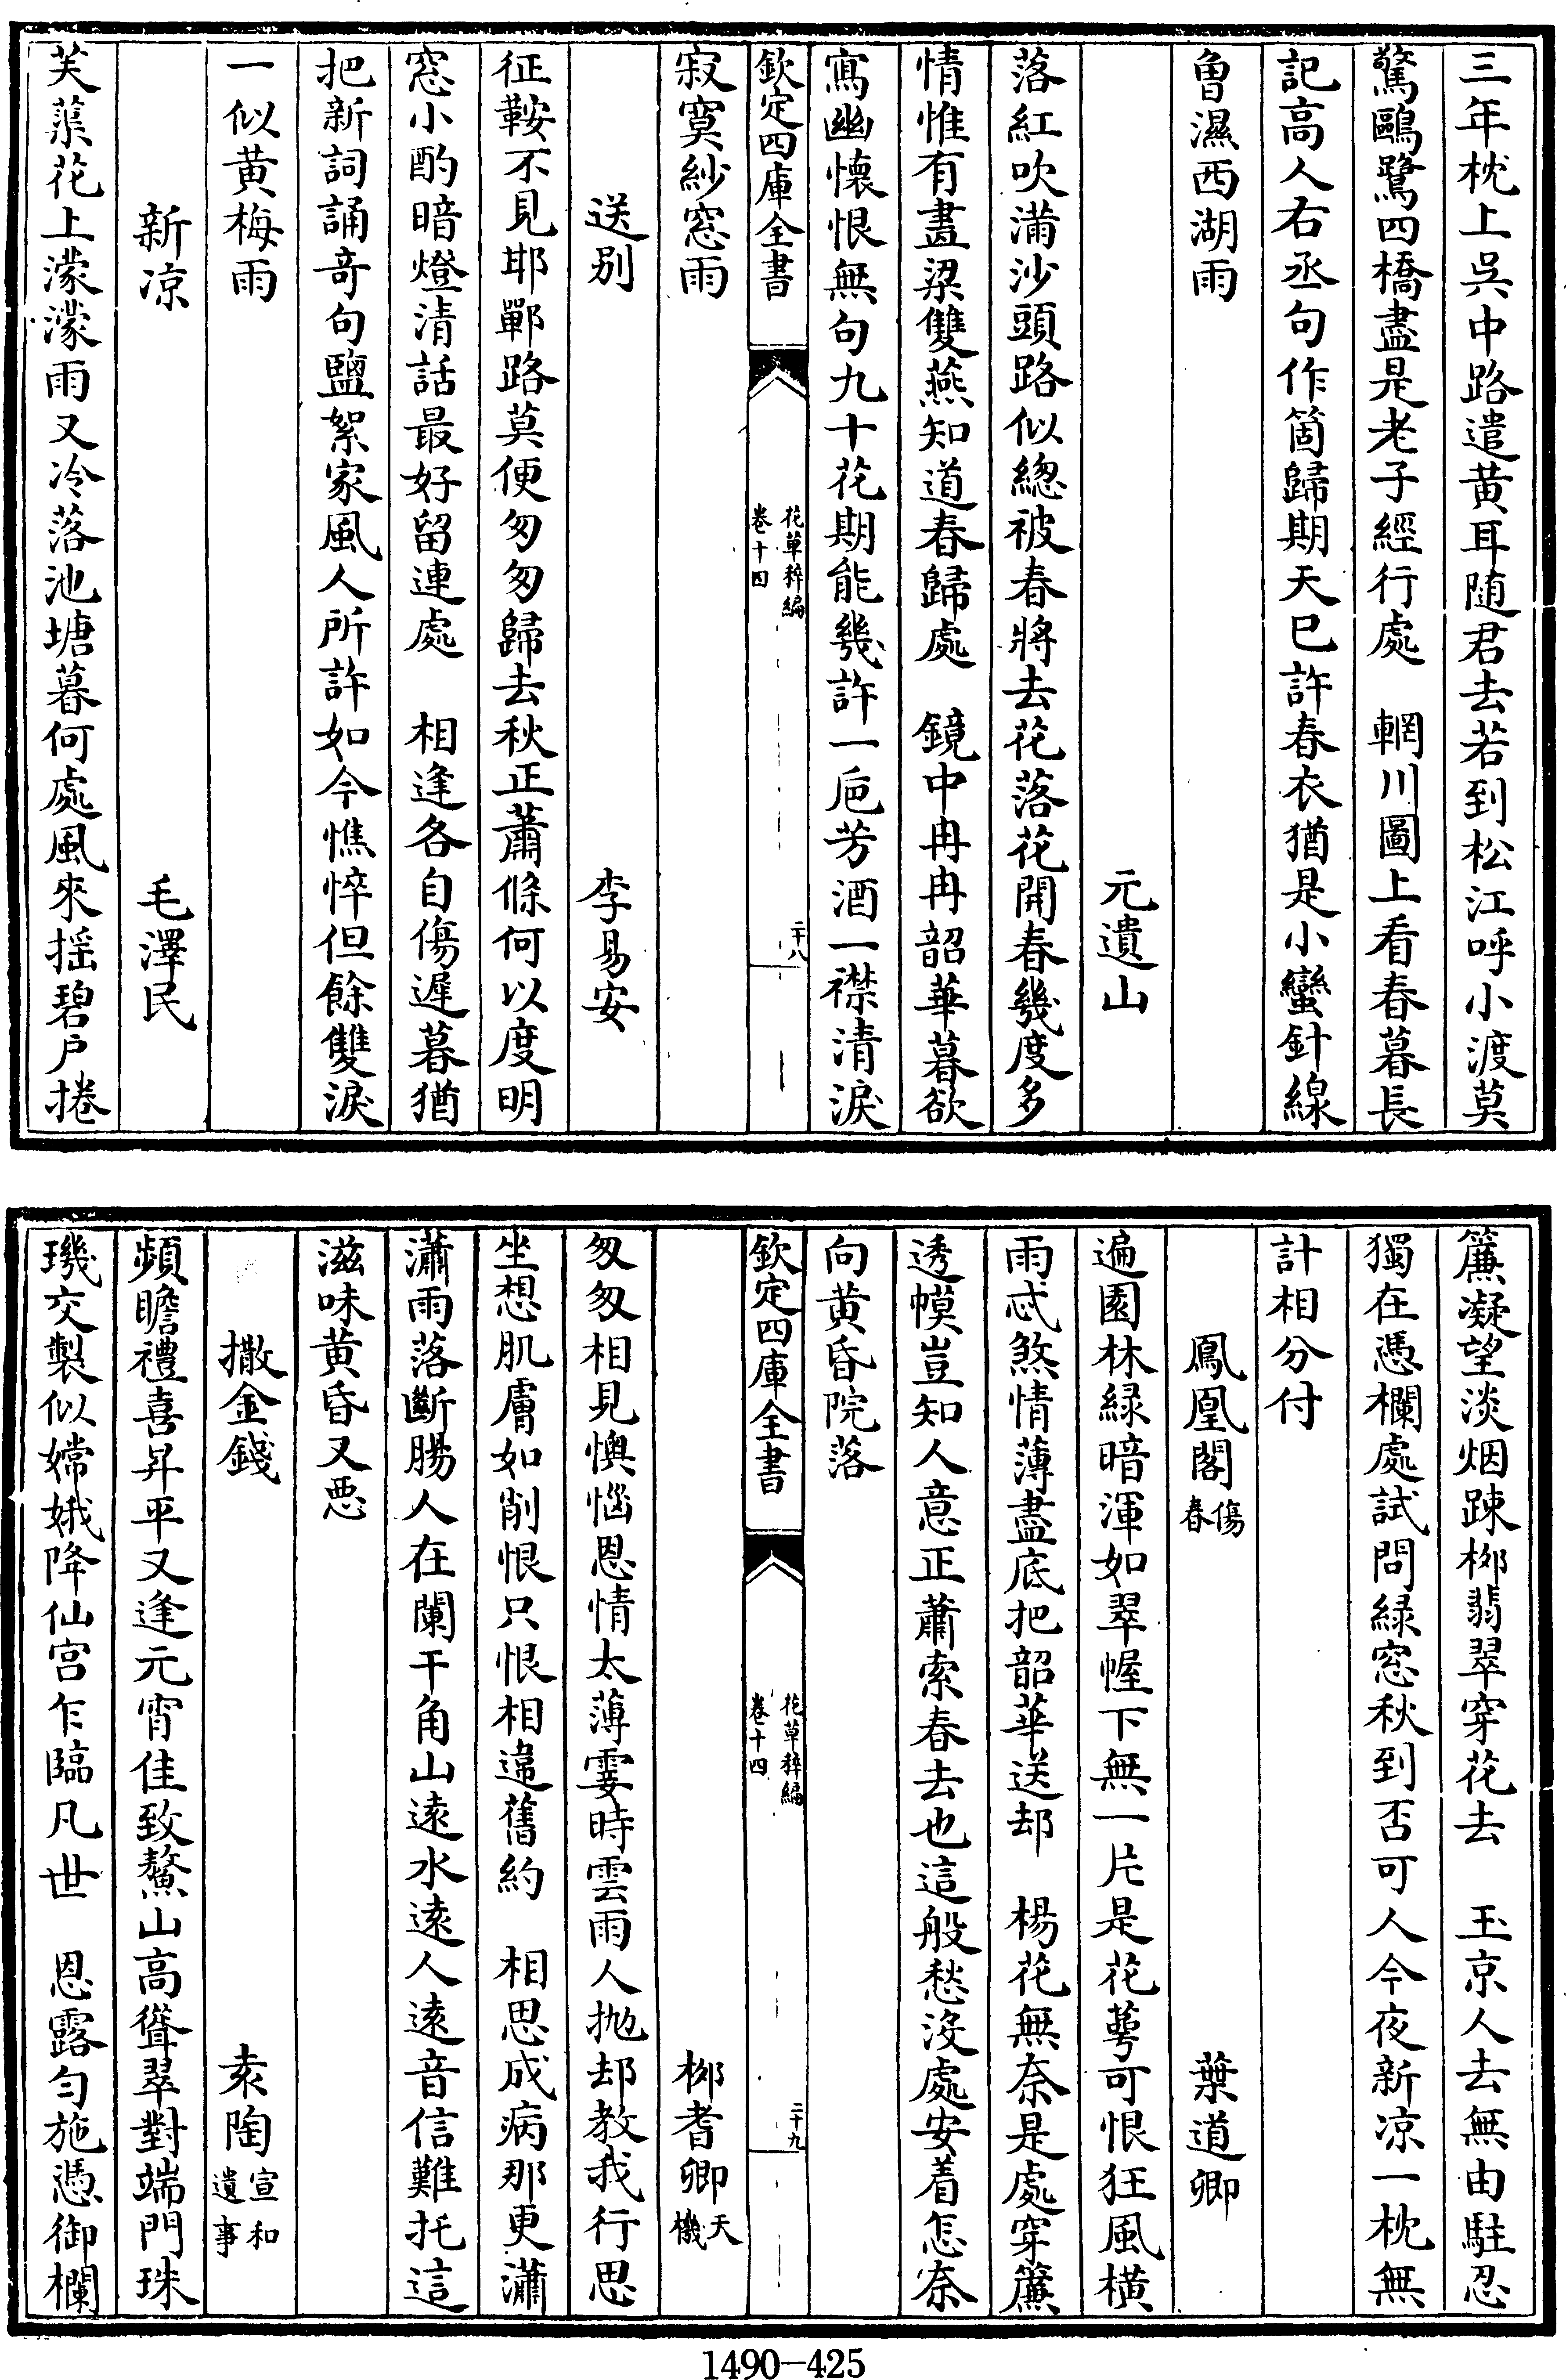 三年枕上吳中路遣黄耳随君去若到松江呼小渡莫
驚鷗鷺四橋盡是老子經行處　輞川圖上看春暮長
記高人右丞句作箇歸期天已許春衣猶是小蠻針線
曽濕西湖雨
元遺山
落紅吹滿沙頭路似總被春將去花落花開春幾度多
情惟有畫梁雙燕知道春歸處　鏡中冉冉韶華暮欲
寫幽懷恨無句九十花期能幾許一巵芳酒一襟清淚
欽定四庫全書　花草稡編　卷十四　二十八
寂寞紗窓雨
送别　李易安
征鞍不見邯鄲路莫便匆匆歸去秋正蕭條何以度明
窓小酌暗燈清話最好留連處　相逢各自傷遲暮猶
把新詞誦竒句鹽絮家風人所許如今憔悴但餘雙淚
一似黄梅雨
新凉　毛澤民
芙蕖花上濛濛雨又冷落池塘暮何處風來揺碧户捲
簾凝望淡烟踈桞翡翠穿花去　玉京人去無由駐忍
獨在憑欄處試問緑窓秋到否可人今夜新凉一枕無
計相分付
鳳凰閣傷春　葉道卿
遍園林緑暗渾如翠幄下無一片是花萼可恨狂風横
雨忒煞情薄盡底把韶華送却　楊花無奈是處穿簾
透幙豈知人意正蕭索春去也這般愁没處安着怎奈
向黄昏院落
欽定四庫全書　花草稡編　卷十四　二十九
桞耆卿天機
匆匆相見懊惱恩情太薄霎時雲雨人抛却教我行思
坐想肌膚如削恨只恨相違舊約　相思成病那更瀟
瀟雨落斷腸人在闌干角山遠水遠人遠音信難托這
滋味黄昏又惡
撒金錢　袁陶宣和遺事
頻瞻禮喜昇平又逢元宵佳致鰲山高聳翠對端門珠
璣交製似嫦娥降仙宫乍臨凡世　恩露匀施憑御欄
1490－425